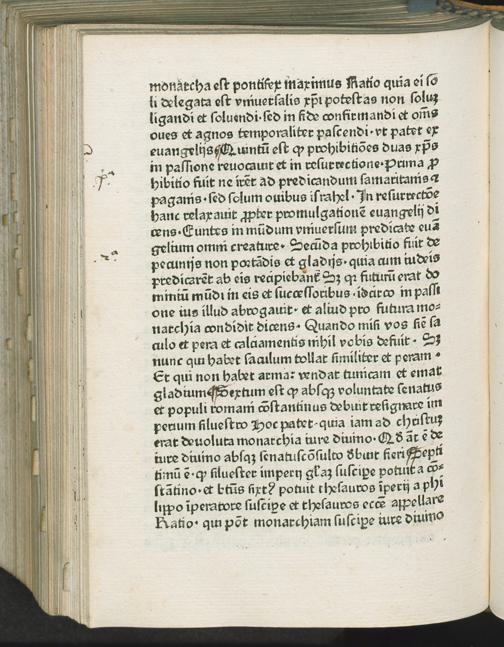 monarcha est pontifex maximus Ratio quia ei so
li delegata est vniuersalis xp̄i potestas non soluꝫ
ligandi et soluendi · sed in fide confirmandi et om̄s
oues et agnos temporaliter pascendi · vt patet ex
euangelijs Quintū est ꝙ prohibitiōes duas xp̄s
in passione reuocauit et in resurrectione · Prima ꝓ
hibitio fuit ne irēt ad predicandum samaritanis ⁊
paganis · sed solum ouibus israhel · In resurrectōe
hanc relaxauit ꝓpter promulgationē euangelij di
cens · Euntes in mūdum vniuersum predicate euā
gelium omni creature · Secūda prohibitio fuit de
pecunijs non portādis et gladijs · quia cum iudeis
predicarēt ab eis recipiebant̄ Sꝫ qꝛ futurū erat do
miniū mūdi in eis et successoribus · idcirco in passi
one ius illud abrogauit · et aliud pro futura mo-
narchia condidit dicens · Quando misi vos sīe sa
culo et pera et calciamentis nihil vobis defuit · Sꝫ
nunc qui habet sacculum tollat similiter et peram ·
Et qui non habet arma: vendat tunicam et emat
gladium Sextum est ꝙ absqꝫ voluntate senatus
et populi romani cōstantinus debuit resignare im
perium siluestro Hoc patet · quia iam ad christuꝫ
erat deuoluta monarchia iure diuino · Qð āt ē de
iure diuino absqꝫ senatuscōsulto ðbuit fieri Septi
timū ē · ꝙ siluester imperij gl̄aꝫ suscipe potuit a cō-
stātino · et btūs sixtꝰ potuit thesauros īperij a phi
lippo īperatore suscipe et thesauros ecce appellare
Ratio · qui pōt monarchiam suscipe iure diuino